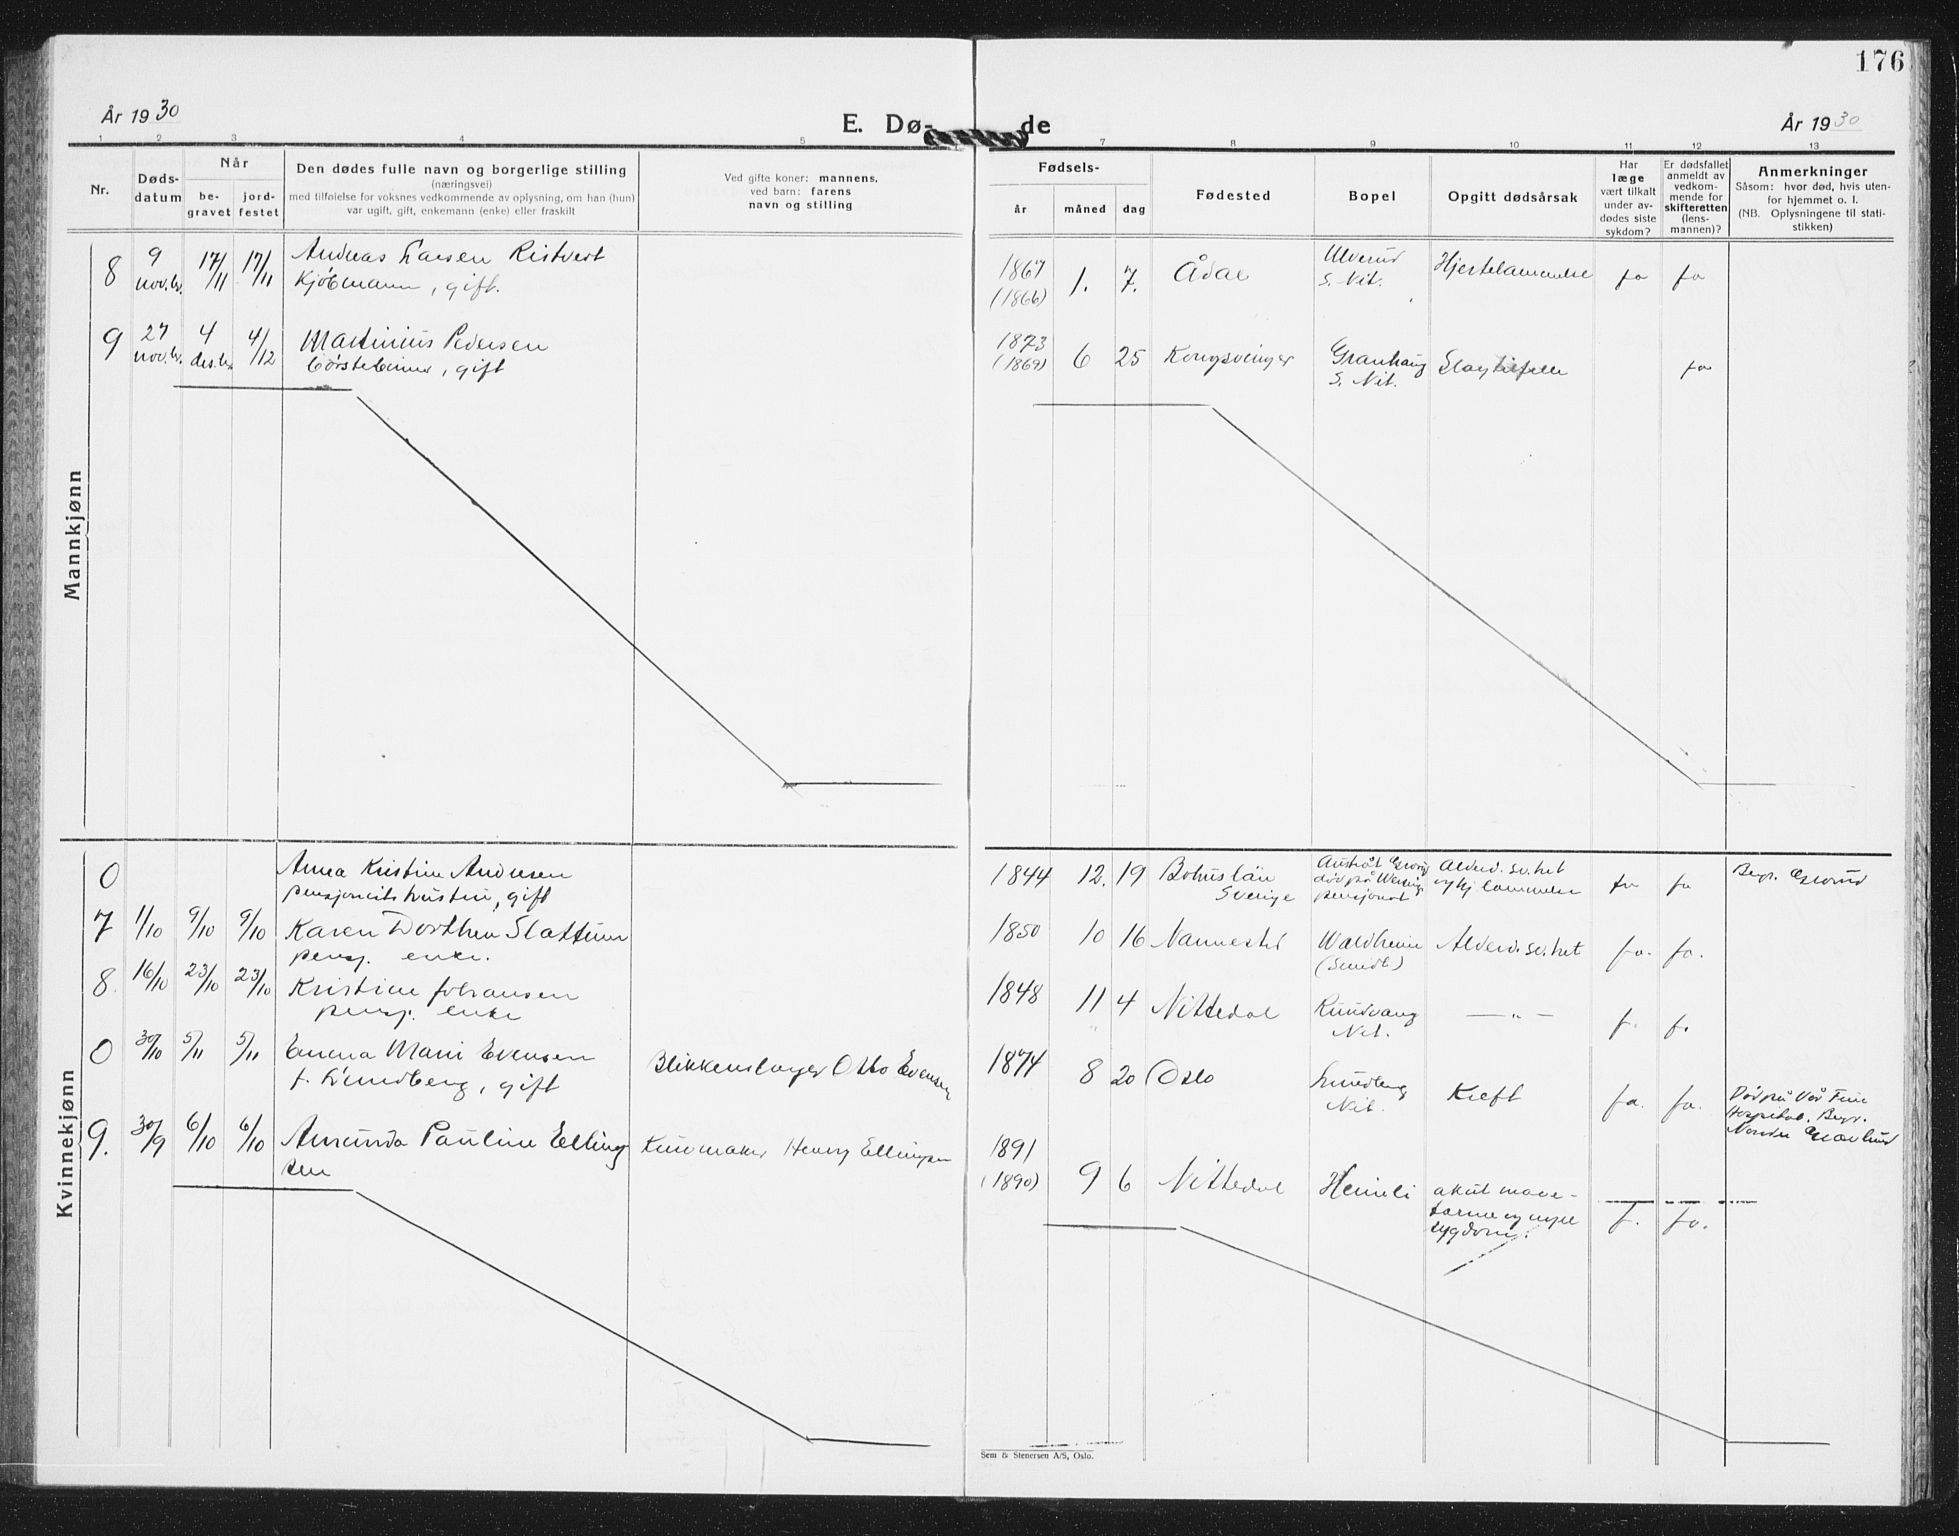 176
År 1930
E. Dø-
de
År 1930
1 2 3 4 5 7 8 9 10 11 12 13
Nr.
Døds-
datum
Når
be-
gravet
jord-
festet
Den dødes fulle navn og borgerlige stilling
(næringsvei)
med tilføielse for voksnes vedkommende av oplysning, om han (hun)
var ugift, gift, enkemann (enke) eller fraskilt
Ved gifte koner: mannens,
ved barn: farens
navn og stilling
Fødsels-
år
måned
dag
Fødested
Bopel
Opgitt dødsårsak
Har
læge
vært tilkalt
under av-
dødes siste
sykdom?
Er dødsfallet
anmeldt av
vedkom-
mende for
skifteretten
(lens-
mannen)?
Anmerkninger
Såsom: hvor død, hvis uten-
for hjemmet o. l.
(NB. Oplysningene til stati-
stikken)
Mannkjønn
8 9 17/11 17/11 Andreas Larsen Ristvedt 1867 1. 7. Ådal Ulverud Hjertelammelse ja ja
nov.br. Kjøbmann, gift. (1866) S. Nit.
9 27 4 4/12 Martinius Pedersen 1873 6 25 Kongsvinger Granhaug Slagtilfelle ja
nov.br. des.br. børstebinder, gift (1869) S. Nit.
Kvinnekjønn
0 Anna Kristine Andersen 1844 12. 19 Bohuslän Alderd.sv.het ja ja Begr. Grorud
gift Sverige pensjonat og hj lammelse
7 1/10 9/10 9/10 Karen Dorthea Slattum 1850 10 16 Nannestad Waldheim Alderd.sv.het ja. ja.
pensj. enke.
8. 16/10 23/10 23/10 Kristine Johansen 1848 11 4 Nittedal Rundvang — „ — j. j.
pensj. enke Nit.
0 30/10 5/11 5/11 Emma Marie Evensen Blikkenslager Otto Evensen 1874 8 20 Oslo Lundberg Kreft ja. ja. Død på Vår Frue
f. Lundberg, gift Nit. Hospital. Begr.
Nordre Gravlund
9. 30/9 6/10 6/10 Amunda Pauline Elling Henry Ellingsen 1891 9 6 Nittedal Heimli akut mave-
sen (1890) tarm og nyre j. ja.
sygdom.
Sem & Stenersen A/S, Oslo.